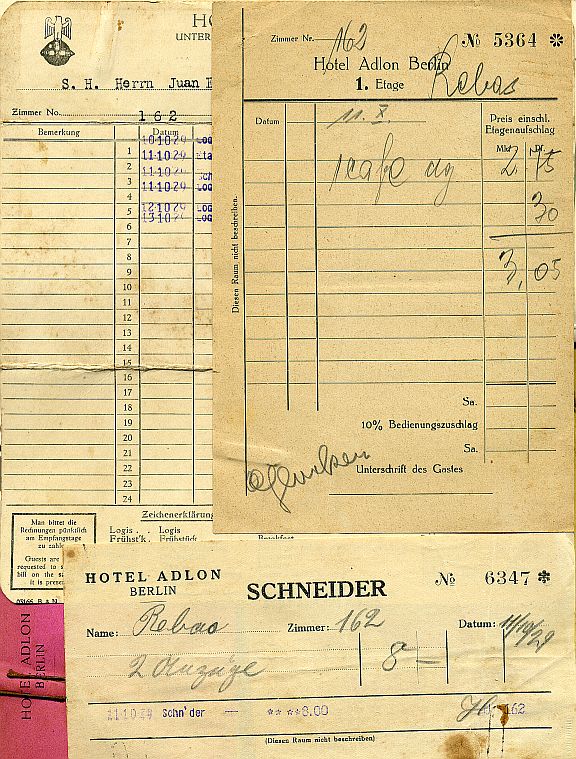 HO
UNTER
S. H. Herrn Juan
Zimmer No. 162
Bemerkung Datum
10.10.29 Log
1 11.10.29 Eta
2 11.10.29
3 11.10.29 Log
4
5 12.10.29 Log
6 13.10.29 Log
7
8
9
10
11
12
13
14
15
16
17
18
19
20
21
22
23
24
Zeichenerklärung
Logis . . Logis
Frühst'k. . Frühstück
Breakfast
Man bittet die
Rechnungen pünktlich
am Empfangstage
zu zahlen
Guests are
requested to s
bill on the sa
it is prese
Zimmer Nr. 162 № 5364 ✻
Hotel Adlon Berlin
1. Etage Rebao
Datum 11. X. Preis einschl.
Etagenaufschlag
Mk. Pf.
1 Cafe 2,75
30
3,05
Diesen Raum nicht beschreiben.
Sa.
10% Bedienungszuschlag
Sa.
Unterschrift des Gastes
HOTEL ADLON
BERLIN
SCHNEIDER
№ 6347 ✻
Name: Rebao Zimmer: 162 Datum: 11/10/29
2 Anzüge 8 —
11.10.29 Schn'der — ** **8.00 162
(Diesen Raum nicht beschreiben)
HOTEL ADLON
BERLIN